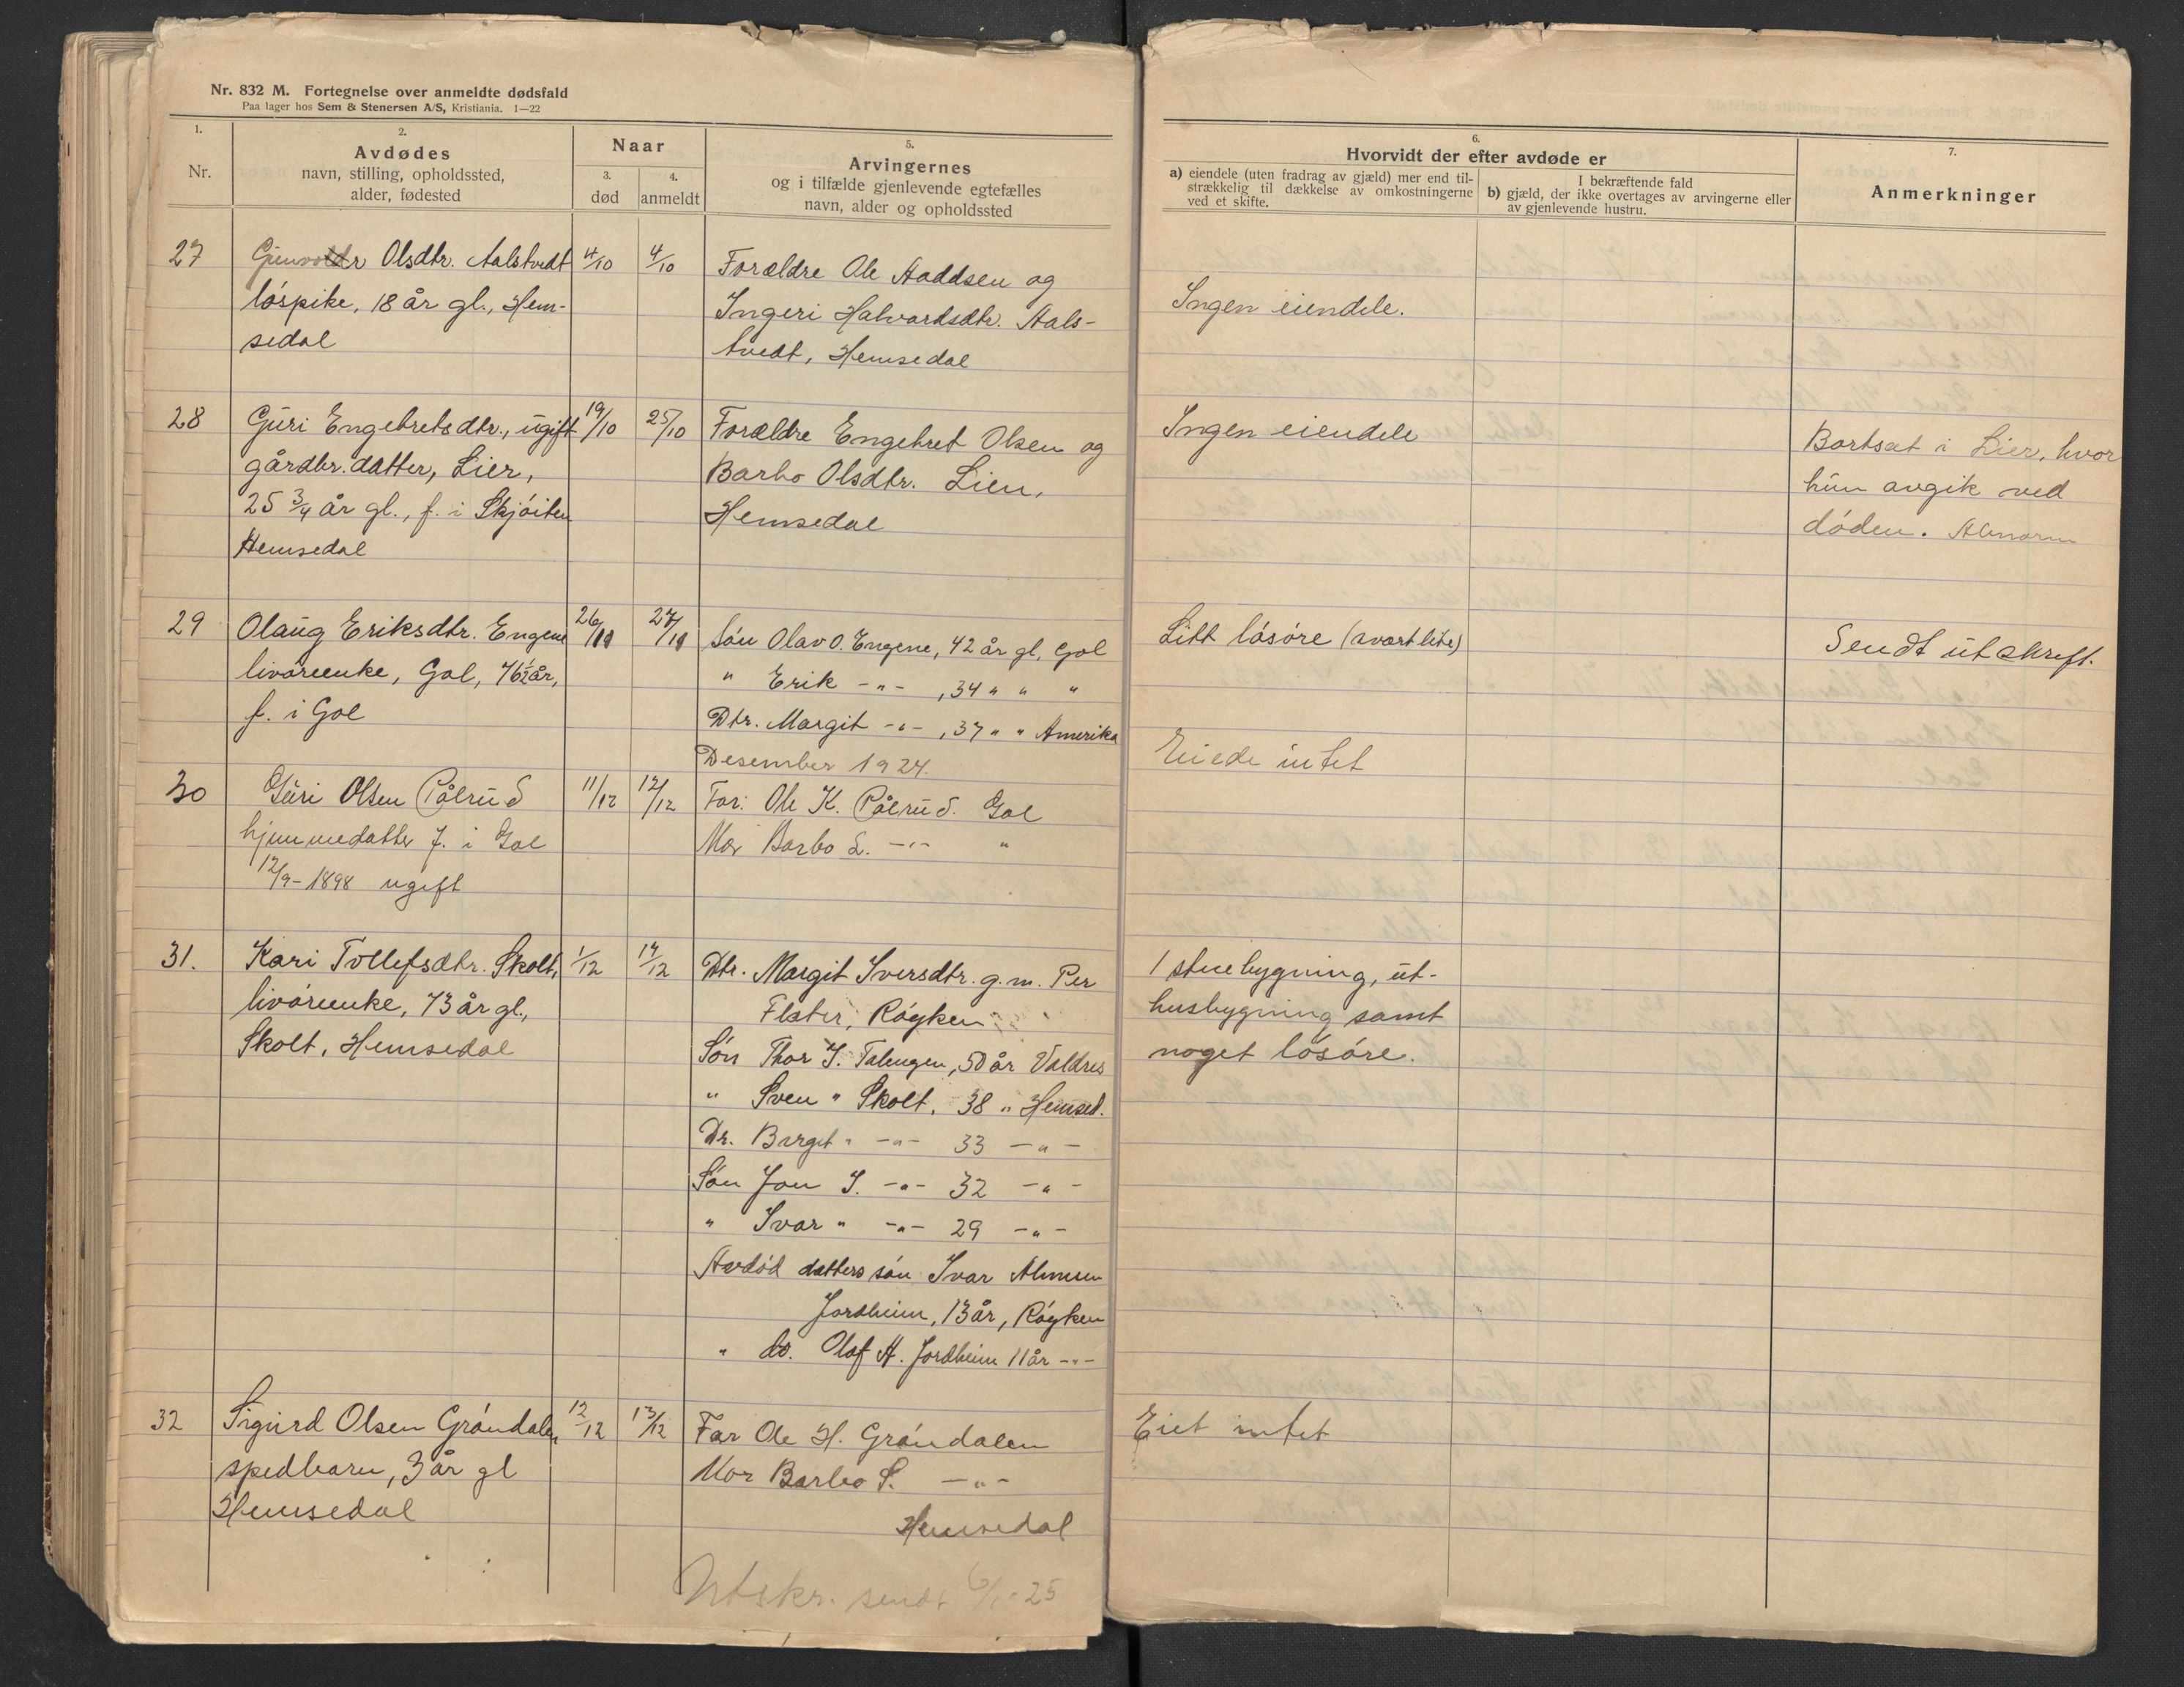 Nr. 832 M. Fortegnelse over anmeldte dødsfald
Paa lager hos Sem & Stenersen A/S, Kristiania. 1—22
1.
Nr.
2.
Avdødes
navn, stilling, opholdssted,
alder, fødested
Naar
3.
død
4.
anmeldt
5.
Arvingernes
og i tilfælde gjenlevende egtefælles
navn, alder og opholdssted
6.
Hvorvidt der efter avdøde er
a) eiendele (uten fradrag av gjæld) mer end til-
strækkelig til dækkelse av omkostningerne
ved et skifte.
I bekræftende fald
b) gjæld, der ikke overtages av arvingerne eller
av gjenlevende hustru.
7.
Anmerkninger
27
Olsdtr. Aalstvedt
løspike, 18 år gl., Hem-
sedal
4/10
4/10
Forældre Ole Aaddsen og
Ingeri Halvardsdtr. Aals-
tvedt, Hemsedal
Ingen eiendele.
28
Guri Engebretsdtr., ugift
gårdbr.datter, Lier,
25 3/4 år gl., f. i Skjøiten
Hemsedal
19/10
25/10
Forældre Engebret Olsen og
Barbo Olsdtr. Lien,
Hemsedal
Ingen eiendele
Bortsat i Lier, hvor
hun avgik ved
døden.
29
Olaug Eriksdtr. Engene
livøreenke, Gol, 76½ år,
f. i Gol
26/11
27/11
Søn Olav O. Engene, 42 år gl, Gol
" Erik -"- , 34 " " "
Dtr. Margit -"- , 37 " " Amerika
Litt løsøre (svært lite)
Sendt utskrift.
Desember 1924.
30
Guri Olsen Pålrud
hjemmedatter f. i Gol
12/9-1898 ugift
11/12
12/12
Far: Ole K. Pålrud. Gol
Mor Barbo L. -"- "
Eiede intet
31.
Kari Tollefsdtr. Skolt,
livøreenke, 73 år gl.,
Skolt, Hemsedal
1/12
14/12
Dtr. Margit Iversdtr. g.m. Per
Flater, Røyken
Søn Thor I. Talengen, 50 år Valdres
" Sven " Skolt, 38 " Hemsed.
Dr. Birgit " -"- 33 -"-
Søn Jon I. -"- 32 -"-
" Ivar " -"- 29 -"-
Avdød datters søn Ivar
Jordheim, 13 år, Røyken
" do. Olaf A. Jordheim 11 år -"-
1 stuebygning, ut-
husbygning samt
noget løsøre.
32
Sigurd Olsen Grøndalen
spedbarn, 3 år gl
Hemsedal
12/12
13/12
Far Ole H. Grøndalen
Mor Barbo S. -"-
Hemsedal
Eiet intet
Utskr. sendt 6/1-25